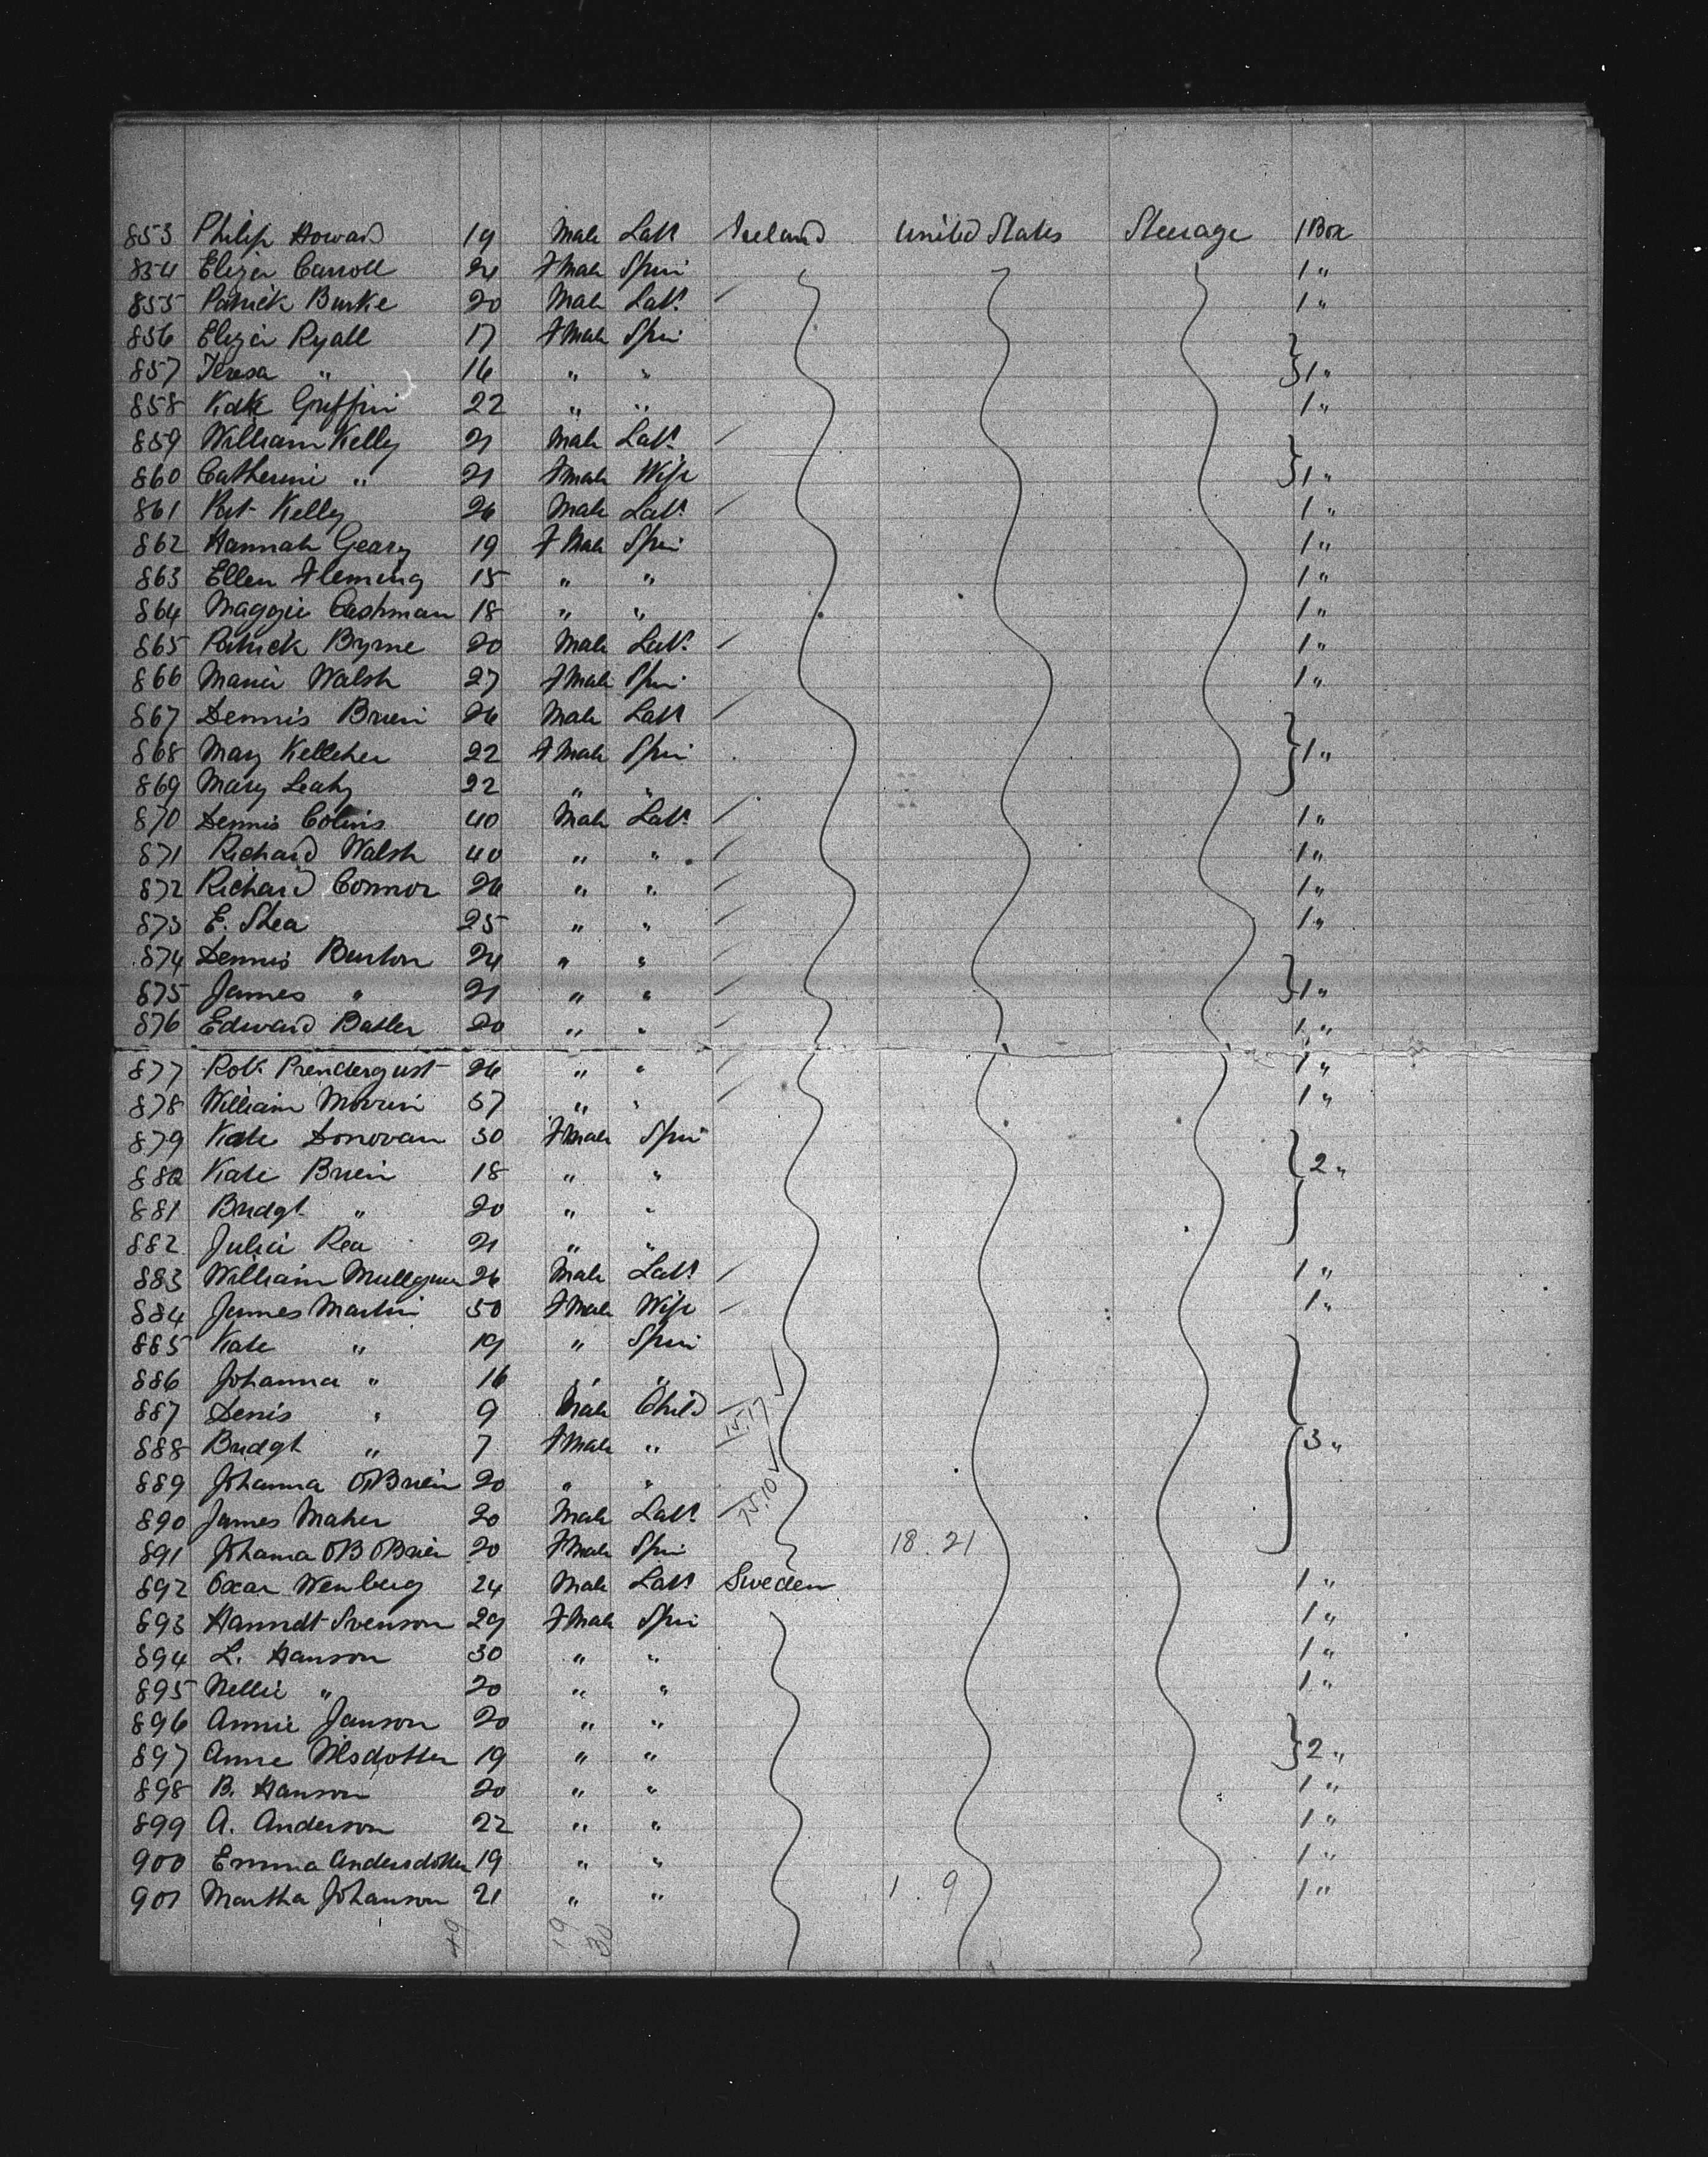 853 Philip Howard 19 Male Labr Ireland United States Steerage 1 Box
854 Eliza Carroll 24 Fmale Spin 1 "
855 Patrick Burke 20 Male Labr 1 "
856 Eliza Ryall 17 Fmale Spin
857 Teresa " 16 " " } 1 "
858 Kate Griffin 22 " " 1 "
859 William Kelly 21 Male Labr
860 Catherine " 21 Fmale Wife } 1 "
861 Pat Kelly 26 Male Labr 1 "
862 Hannah Geary 19 Fmale Spin 1 "
863 Ellen Fleming 15 " " 1 "
864 Maggie Cashman 18 " " 1 "
865 Patrick Byrne 20 Male Labr 1 "
866 Maria Walsh 27 Fmale Spin 1 "
867 Dennis Brien 26 Male Labr
868 Mary Kelleher 22 Fmale Spin } 1 "
869 Mary Leahy 22 " "
870 Dennis Colins 40 Male Labr 1 "
871 Richard Walsh 40 " " 1 "
872 Richard Connor 26 " " 1 "
873 E. Shea 25 " " 1 "
874 Dennis Burton 24 " "
875 James " 21 " " } 1 "
876 Edward Batler 20 " " 1 "
877 Robt Prendergust 26 " " 1 "
878 William 37 " " 1 "
879 Kate Donovan 30 Fmale Spin
880 Kate Brien 18 " " } 2 "
881 Bridgt " 20 " "
882 Julia Rea 21 " "
883 William 26 Male Labr 1 "
884 James Martin 50 Fmale Wife 1 "
885 Kate " 19 " Spin
886 Johanna " 16 " "
887 Denis " 9 Male Child 15.17 ✓
888 Bridgt " 7 Fmale " } 3 "
889 Johanna OBrien 20 " "
890 James Maher 20 Male Labr 25.10 ✓
891 Johana OB OBrien 20 Fmale Spin 18.21
892 Oxar Wenberg 24 Male Labr Sweden 1 "
893 Hanndt Svenson 29 Fmale Spin 1 "
894 L. Hanson 30 " " 1 "
895 Nellie " 20 " " 1 "
896 Annie Janson 20 " "
897 Anne Nilsdotter 19 " " } 2 "
898 B. Hanson 20 " " 1 "
899 A. Anderson 22 " " 1 "
900 Emma Andersdotter 19 " " 1 "
901 Martha Johanson 21 " " 1.9 1 "
49 19 30